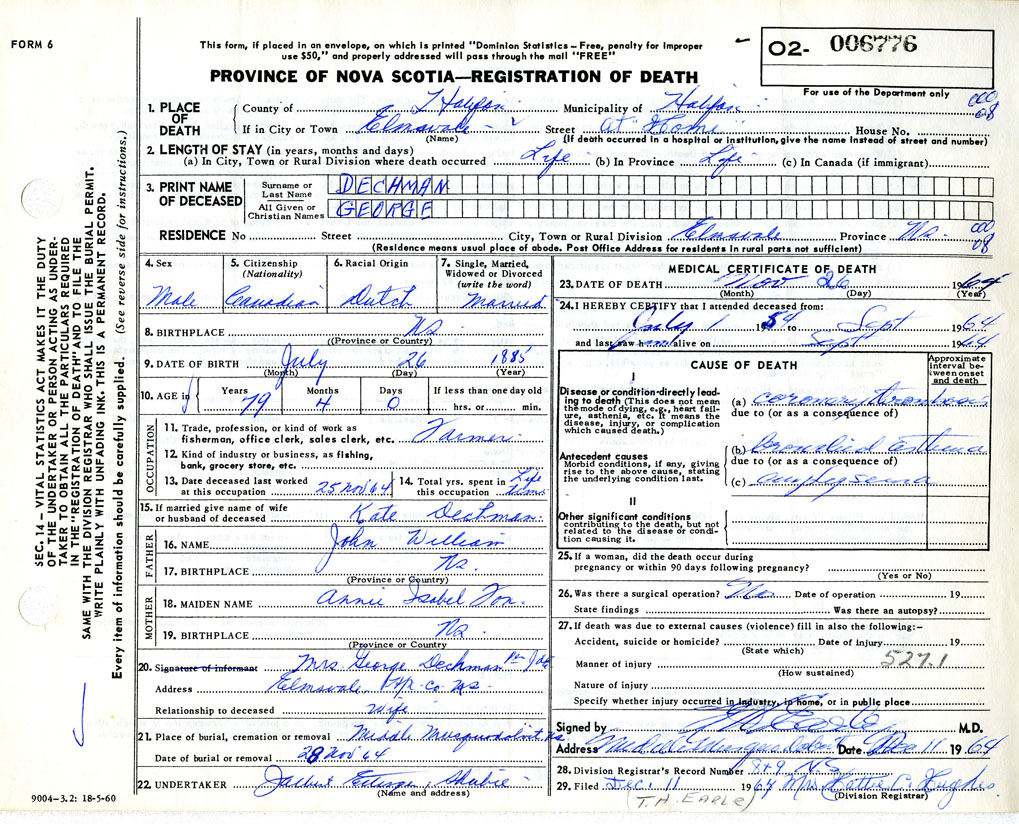 FORM 6
This form, if placed in an envelope, on which is printed "Dominion Statistics – Free, penalty for improper
use $50," and properly addressed will pass through the mail "FREE"
PROVINCE OF NOVA SCOTIA—REGISTRATION OF DEATH
O2- 006776
For use of the Department only
1. PLACE OF DEATH
County of Halifax Municipality of Halifax 000 08
If in City or Town Elmsvale Street At Home House No.
(Name) (If death occurred in a hospital or institution, give the name instead of street and number)
2. LENGTH OF STAY (in years, months and days)
(a) In City, Town or Rural Division where death occurred Life (b) In Province Life (c) In Canada (if immigrant)
3. PRINT NAME OF DECEASED
Surname or Last Name DECHMAN
All Given or Christian Names GEORGE
RESIDENCE No Street City, Town or Rural Division Elmsvale Province Ns. 000 08
(Residence means usual place of abode. Post Office Address for residents in rural parts not sufficient)
4. Sex Male
5. Citizenship (Nationality) Canadian
6. Racial Origin Dutch
7. Single, Married, Widowed or Divorced (write the word) Married
8. BIRTHPLACE Ns
(Province or Country)
9. DATE OF BIRTH July 26 1885
(Month) (Day) (Year)
10. AGE in Years 79 Months 4 Days 0 If less than one day old hrs. or min.
OCCUPATION
11. Trade, profession, or kind of work as fisherman, office clerk, sales clerk, etc. Farmer
12. Kind of industry or business, as fishing, bank, grocery store, etc.
13. Date deceased last worked at this occupation 25 Nov 64
14. Total yrs. spent in this occupation Life time
15. If married give name of wife or husband of deceased Kate Dechman
FATHER
16. NAME John William
17. BIRTHPLACE Ns.
(Province or Country)
MOTHER
18. MAIDEN NAME Annie Isabel
19. BIRTHPLACE Ns
(Province or Country
20. Signature of informant Mrs George Dechman
Address Elmsvale Hfx. Co. Ns
Relationship to deceased wife
21. Place of burial, cremation or removal Middle Musquodoboit Ns
Date of burial or removal 28 Nov 64
22. UNDERTAKER Shubie
(Name and address)
MEDICAL CERTIFICATE OF DEATH
23. DATE OF DEATH Nov 26 1964
(Month) (Day) (Year)
24. I HEREBY CERTIFY that I attended deceased from:
July 1 1954 to Sept 1964
and last saw him alive on Sept 1964
CAUSE OF DEATH
Approximate interval between onset and death
I
Disease or condition directly leading to death (This does not mean the mode of dying, e.g., heart failure, asthenia, etc. It means the disease, injury, or complication which caused death.)
(a) coronary thrombosis
due to (or as a consequence of)
Antecedent causes
Morbid conditions, if any, giving rise to the above cause, stating the underlying condition last.
(b) Bronchial asthma
due to (or as a consequence of)
(c) emphysema
II
Other significant conditions
contributing to the death, but not related to the disease or condition causing it.
25. If a woman, did the death occur during pregnancy or within 90 days following pregnancy?
(Yes or No)
26. Was there a surgical operation? No Date of operation 19
State findings Was there an autopsy?
27. If death was due to external causes (violence) fill in also the following:-
Accident, suicide or homicide? Date of injury 19
(State which)
Manner of injury 527.1
(How sustained)
Nature of injury
Specify whether injury occurred in industry, in home, or in public place
Signed by M.D.
Address Date Dec 11 1964
28. Division Registrar's Record Number 849 NS
29. Filed Dec. 11 1964 Mrs Hattie C. Hughes
(Division Registrar)
(T.H. EARLE)
9004–3.2: 18-5-60
SEC. 14 – VITAL STATISTICS ACT MAKES IT THE DUTY
OF THE UNDERTAKER OR PERSON ACTING AS UNDER-
TAKER TO OBTAIN ALL THE PARTICULARS REQUIRED
IN THE "REGISTRATION OF DEATH" AND TO FILE THE
SAME WITH THE DIVISION REGISTRAR WHO SHALL ISSUE THE BURIAL PERMIT.
WRITE PLAINLY WITH UNFADING INK. THIS IS A PERMANENT RECORD.
Every item of information should be carefully supplied. (See reverse side for instructions.)